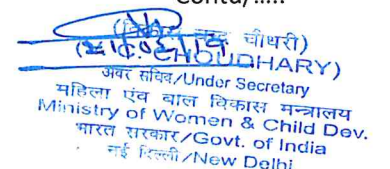 Contd/.....
चौधरी)
CHOUDHARY)
अवर सचिव/Under Secretary
महिला एंव बाल विकास मन्त्रालय
Ministry of Women & Child Dev.
भारत सरकार/Govt. of India
नई दिल्ली/New Delhi